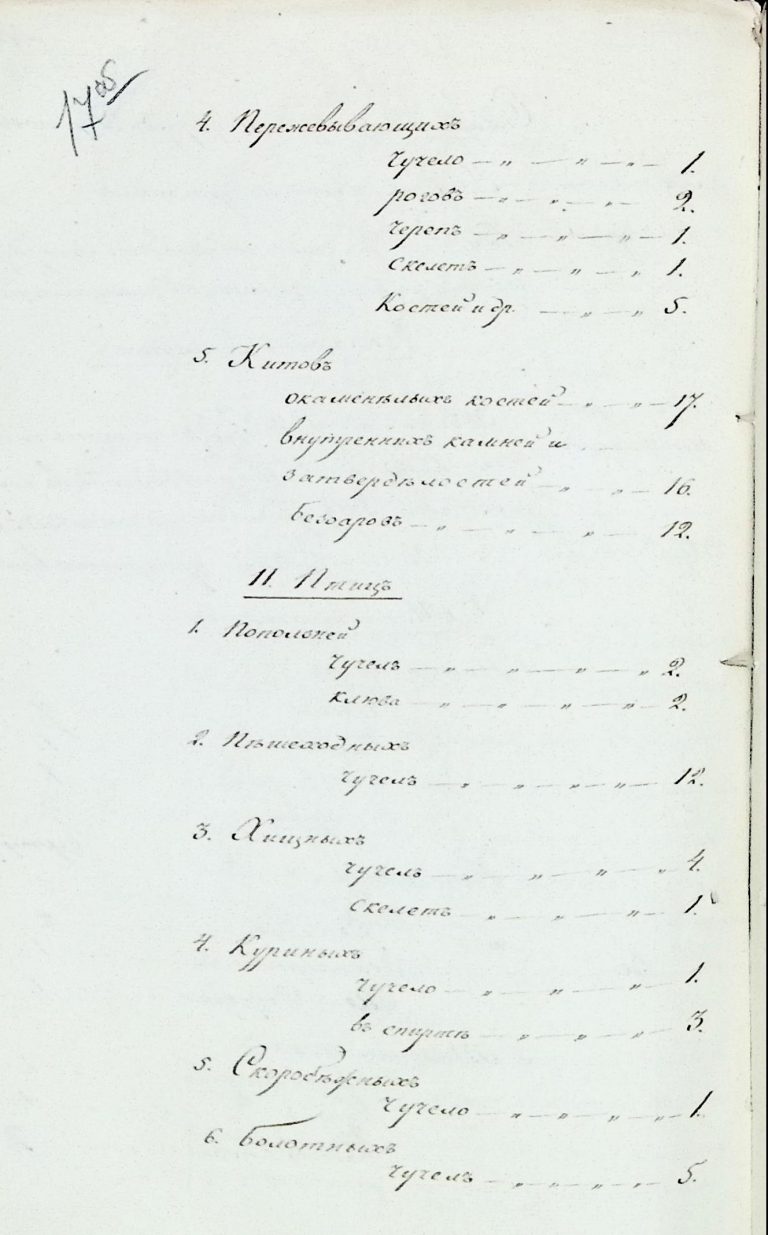 17 об
4. Пережевывающихъ
Чучело — „ — „ — „ — 1.
роговъ — „ — „ — „ — 2.
Черепъ — „ — „ — „ — 1.
Скелетъ — „ — „ — „ 1.
Костей и др. — „ — „ — „ 5.
5. Китовъ
окаменѣлыхъ костей — „ — „ — 17.
внутреннихъ камней и
затвердѣлостей — „ — „ — 16.
Безоаровъ — „ — „ — „ — 12.
II. Птицъ
1. Попольней
Чучелъ — „ — „ — „ — „ 2.
клюва — „ — „ — „ — „ — 2.
2. Пѣшеходныхъ
Чучелъ — „ — „ — „ — „ — 12.
3. Хищныхъ
Чучелъ — „ — „ — „ — „ 4.
Скелетъ — „ — „ — „ — 1.
4. Куриныхъ
Чучело — „ — „ — „ — 1.
въ спиртѣ — „ — „ — „ — 3.
5. Скоробѣжныхъ
Чучело — „ — „ — „ — „ — 1.
6. Болотныхъ
Чучелъ — „ — „ — „ — „ — 5.